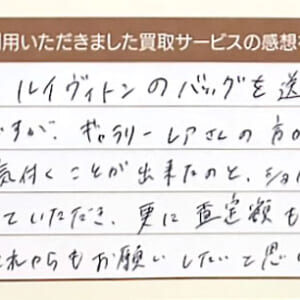 用いただきました買取サービスの感想
ルイヴィトンのバッグを送
ですが、ギャラリーレアさんの方か
気付くことが出来たのと、ショ
ていただき、更に査定額も
これからもお願いしたいと思